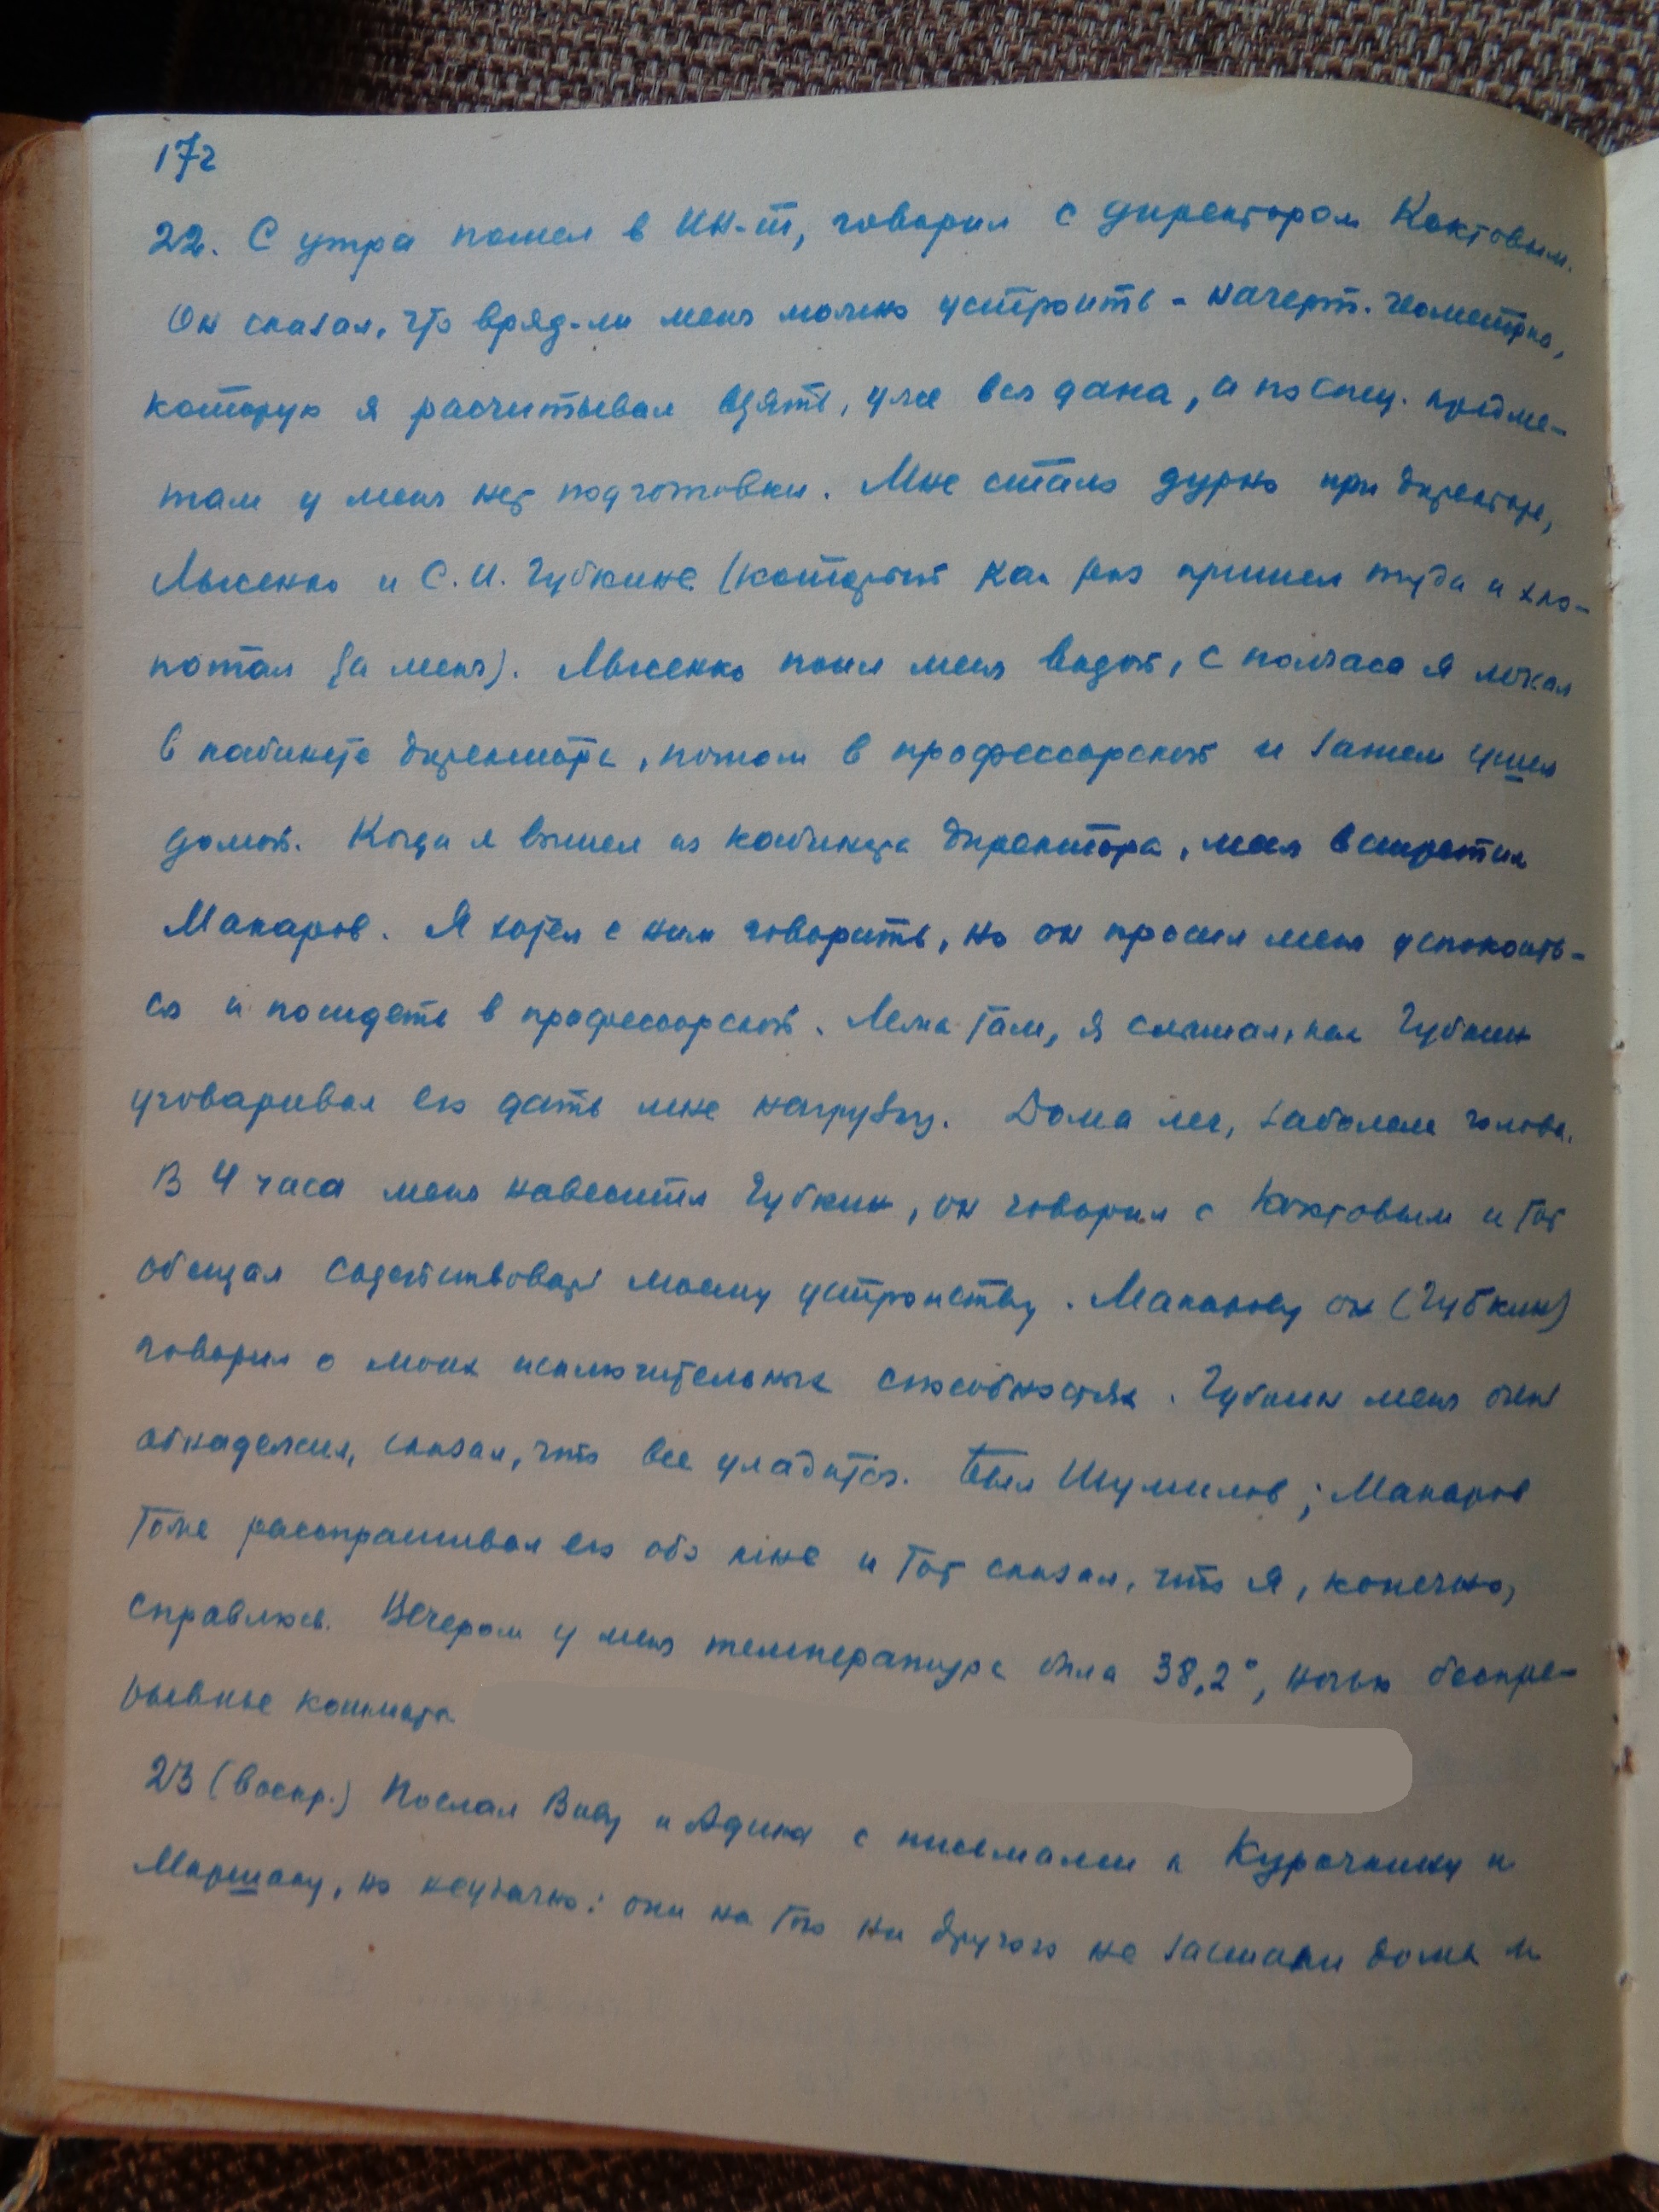 172
22. С утра пошел в Ин-т, говорил с директором Коктовым.
Он сказал, что вряд-ли меня можно устроить - начерт. геометрия,
которую я расчитывал взять, уже вся дана, а по спец. предме-
там у меня нет подготовки. Мне стало дурно при директоре,
Лысенко и С.И. Губкине (который как раз пришел туда и хло-
потал за меня). Лысенко поил меня водой, с полчаса я лежал
в кабинете директора, потом в профессорской и затем ушел
домой. Когда я вышел из кабинета директора, меня встретил
Макаров. Я хотел с ним говорить, но он просил меня успокоить-
ся и посидеть в профессорской. Лежа там, я слышал, как Губкин
уговаривал его дать мне нагрузку. Дома лег, заболела голова.
В 4 часа меня навестил Губкин, он говорил с Коктовым и тот
обещал содействовать моему устройству. Макарову он (Губкин)
говорил о моих исключительных способностях. Губкин меня очень
обнадежил, сказал, что все уладится. Был Шумилов; Макаров
тоже расспрашивал его обо мне и тот сказал, что я, конечно,
справлюсь. Вечером у меня температура была 38,2°, ночью беспре-
рывные кошмары
23 (воскр.) Послал Виву и Адика с письмами к Курочкину и
Маршаку, но неудачно: они ни того ни другого не застали дома и